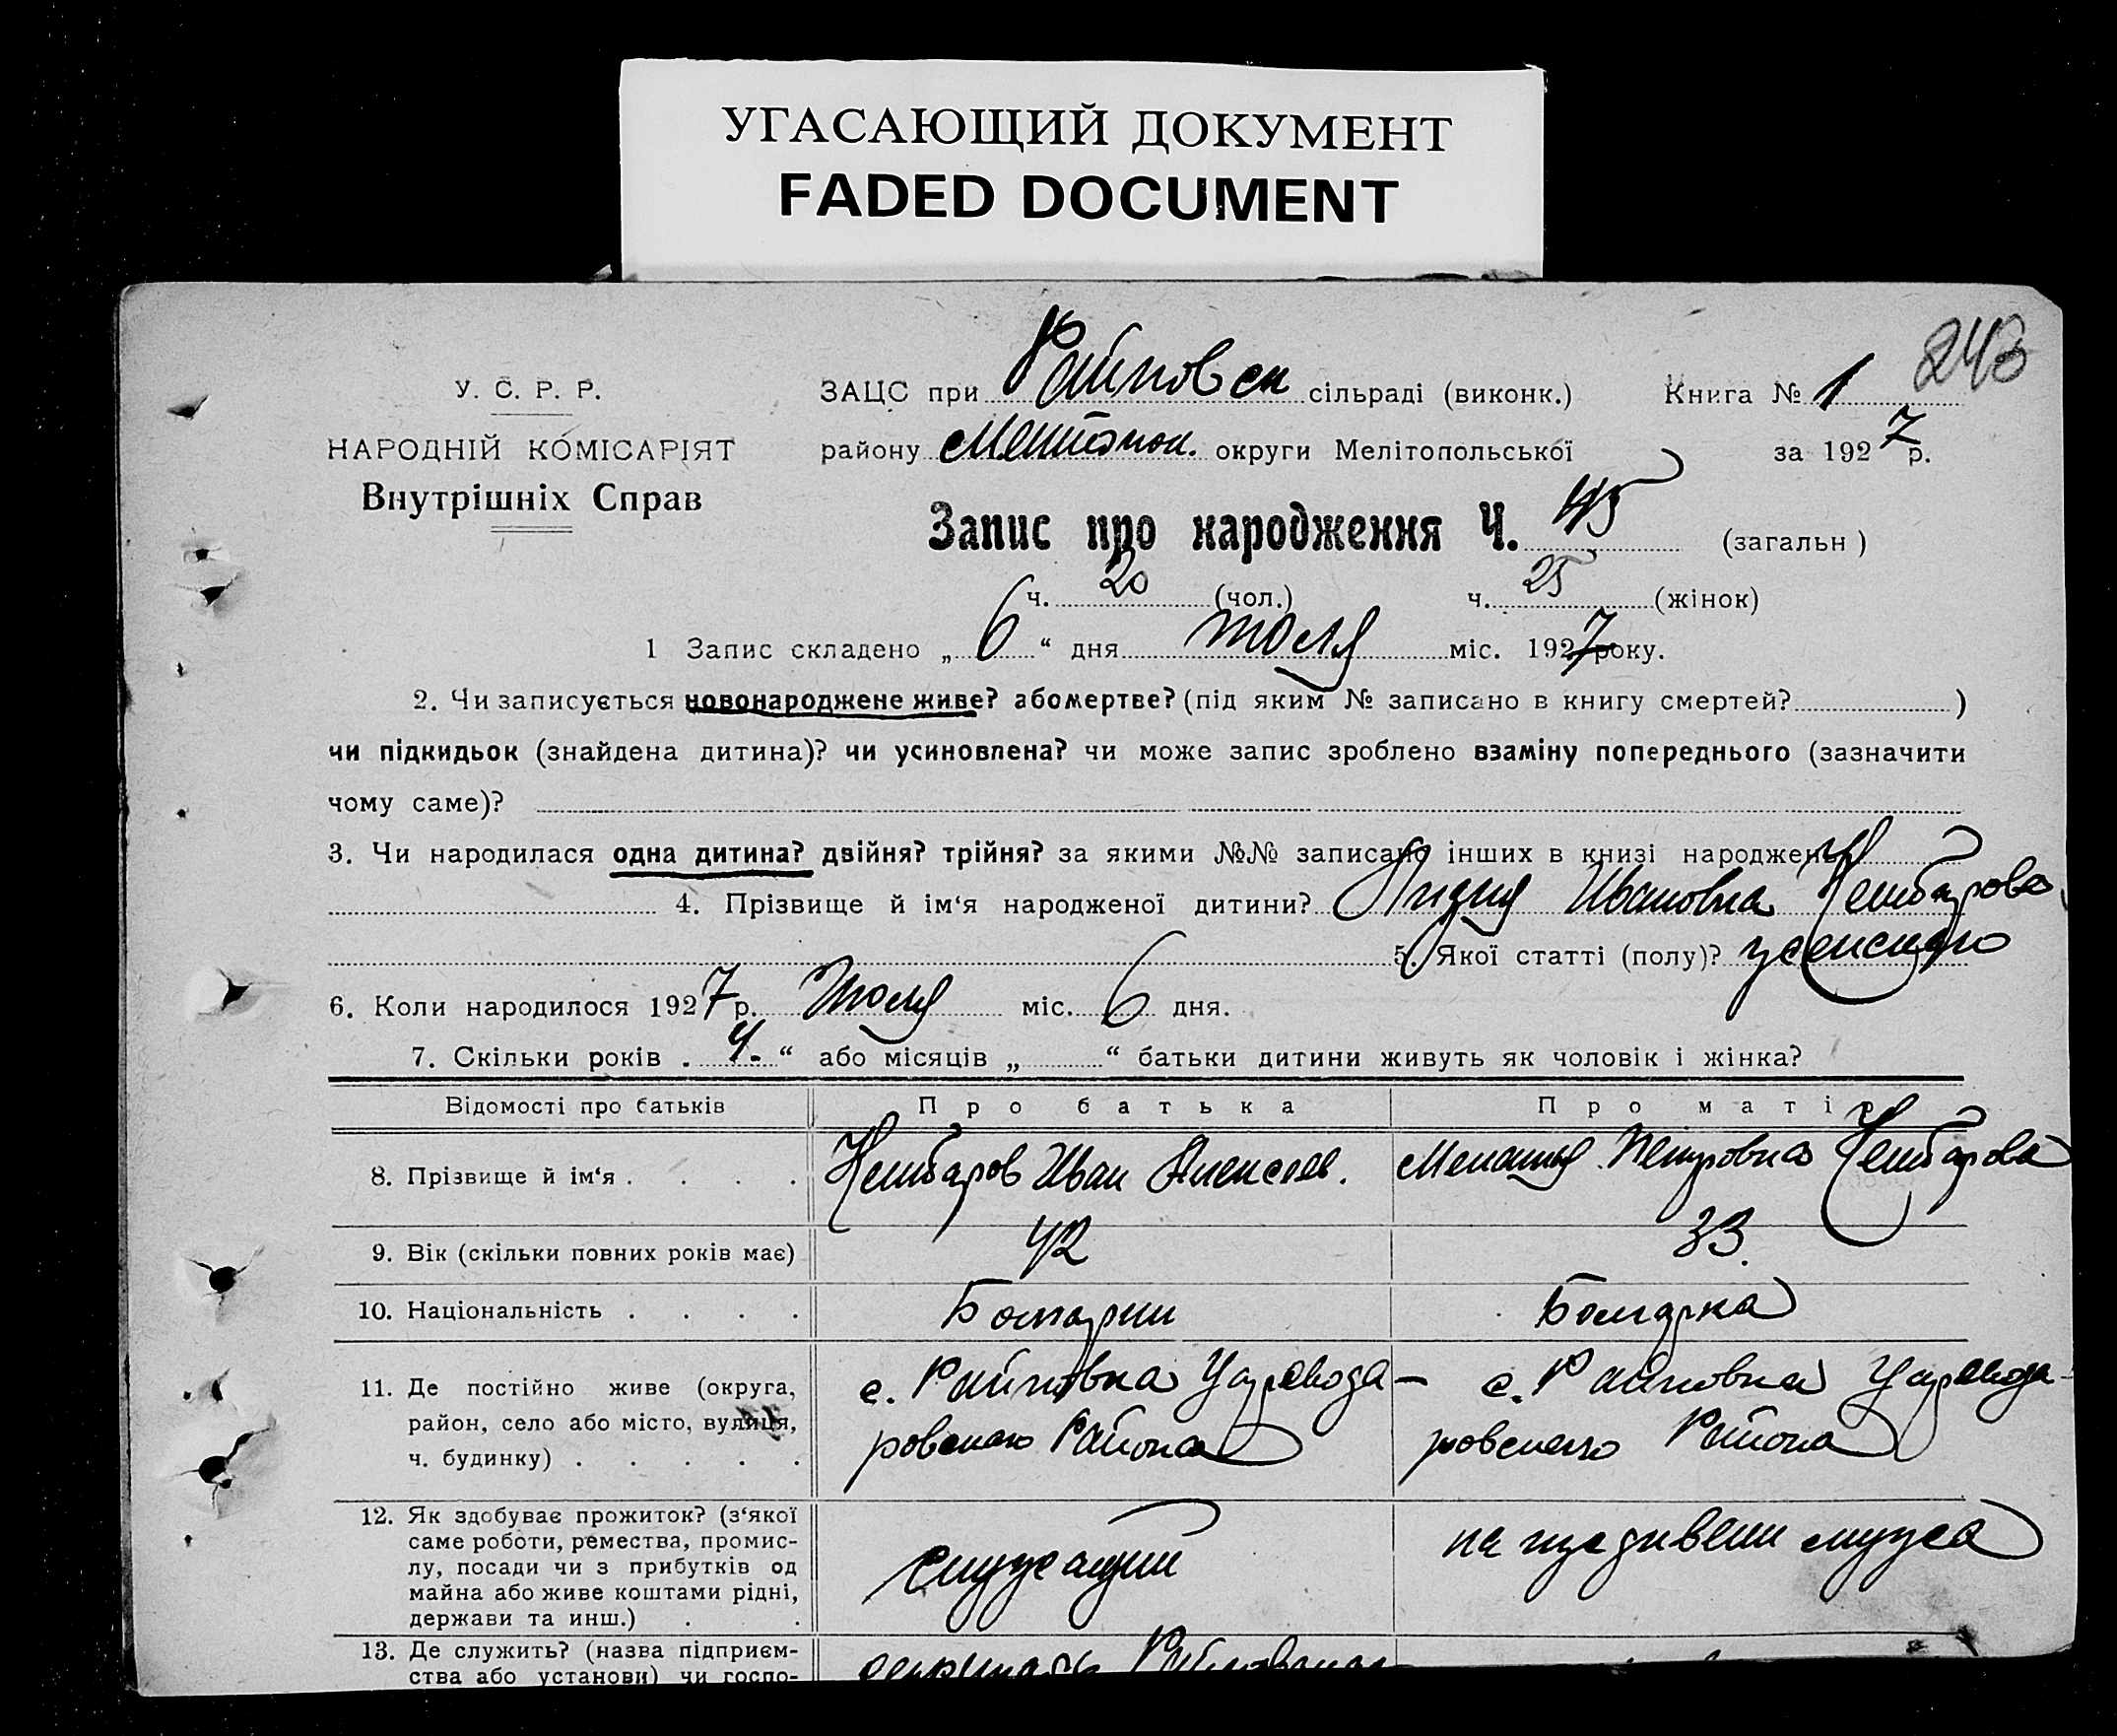 УГАСАЮЩИЙ ДОКУМЕНТ
FADED DOCUMENT
243
У. С. Р. Р.
НАРОДНІЙ КОМІСАРІЯТ
Внутрішніх Справ
ЗАЦС при Райновск сільраді (виконк.) Книга № 1
району Мелитопол. округи Мелітопольської за 1927 р.
Запис про народження Ч. 45 (загальн)
ч. 20 (чол.) ч. 25 (жінок)
1 Запис складено „ 6 “ дня Июля міс. 1927 року.
2. Чи записується новонароджене живе? або мертве? (під яким № записано в книгу смертей? )
чи підкидьок (знайдена дитина)? чи усиновлена? чи може запис зроблено взаміну попереднього (зазначити
чому саме)?
3. Чи народилася одна дитина? двійня? трійня? за якими №№ записано інших в книзі народжень
4. Прізвище й ім‘я народженої дитини? Лидия Ивановна
5. Якої статті (полу)? женского
6. Коли народилося 1927 р. Июля міс. 6 дня.
7. Скільки років „ 4. “ або місяців „ “ батьки дитини живуть як чоловік і жінка?
Відомості про батьків Про батька Про матір
8. Прізвище й ім‘я . . . . Иван Алексеев. Петровна
9. Вік (скільки повних років має) 42 33.
10. Національність . . . . Болгарин Болгарка
11. Де постійно живе (округа,
район, село або місто, вулиця,
ч. будинку) . . . . .
с. Райновка Царевода-
ровского Района
с. Райновка Царевода-
ровского Района
12. Як здобуває прожиток? (з‘якої
саме роботи, ремества, промис-
лу, посади чи з прибутків од
майна або живе коштами рідні,
держави та инш.) . .
служащий
на иждивении мужа
13. Де служить? (назва підприєм-
ства або установи) чи госпо-
секретарь Райновского